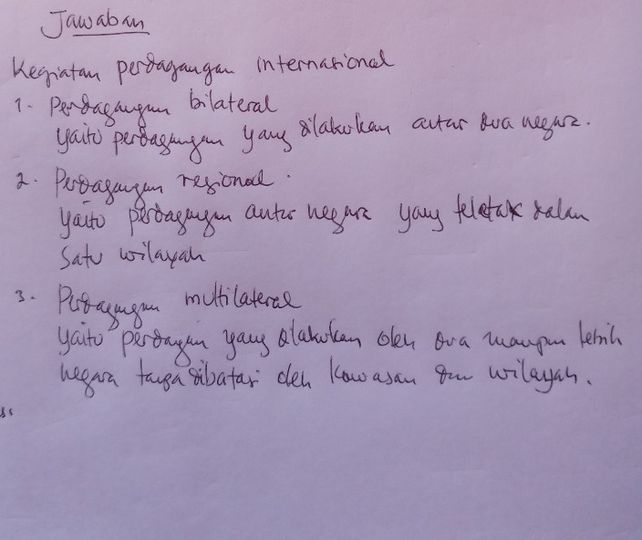 Jawaban
Kegiatan perdagangan internasional
1. Perdagangan bilateral
yaitu perdagangan yang dilakukan antar dua negara.
2. Perdagangan regional.
yaitu perdagangan antar negara yang teletak dalam
satu wilayah
3. Perdagangan multilateral
yaitu perdagan yang dilakukan oleh dua maupun lebih
negara tanpa dibatasi oleh kawasan dan wilayah.